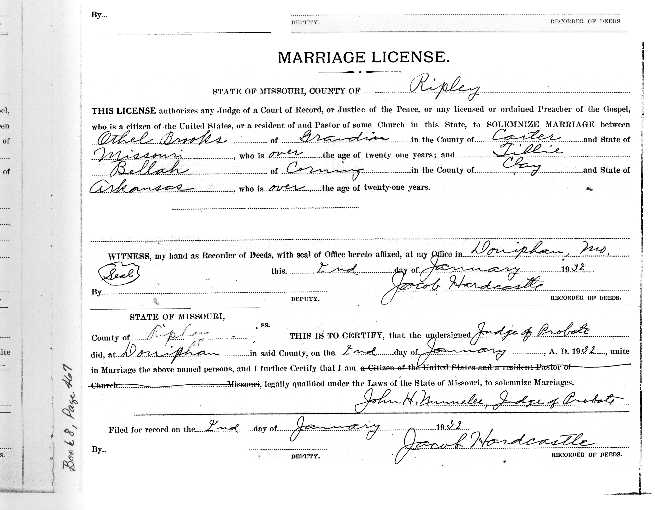 By...
DEPUTY.
RECORDER OF DEEDS
MARRIAGE LICENSE.
STATE OF MISSOURI, COUNTY OF Ripley
THIS LICENSE authorizes any Judge of a Court of Record, or Justice of the Peace, or any licensed or ordained Preacher of the Gospel,
who is a citizen of the United States, or a resident of and Pastor of some Church in this State, to SOLEMNIZE MARRIAGE between
Othel Brooks of Grandin in the County of Carter and State of
Missouri, who is over the age of twenty one years; and Tillie
Bellah of Corning in the County of Clay and State of
Arkansas who is over the age of twenty-one years.
WITNESS, my hand as Recorder of Deeds, with seal of Office hereto affixed, at my Office in Doniphan, Mo.
(Seal) this 2nd day of January 1932
By Jacob Hardcastle
DEPUTY. RECORDER OF DEEDS.
STATE OF MISSOURI,
County of Ripley ss. THIS IS TO CERTIFY, that the undersigned Judge of Probate
did, at Doniphan in said County, on the 2nd day of January, A. D. 1932, unite
in Marriage the above named persons, and I further Certify that I am a Citizen of the United States and a resident Pastor of
Church Missouri, legally qualified under the Laws of the State of Missouri, to solemnize Marriages.
John H. Judge of Probate
Filed for record on the 2nd day of January 1932
By.. Jacob Hardcastle
DEPUTY. RECORDER OF DEEDS.
Page 467